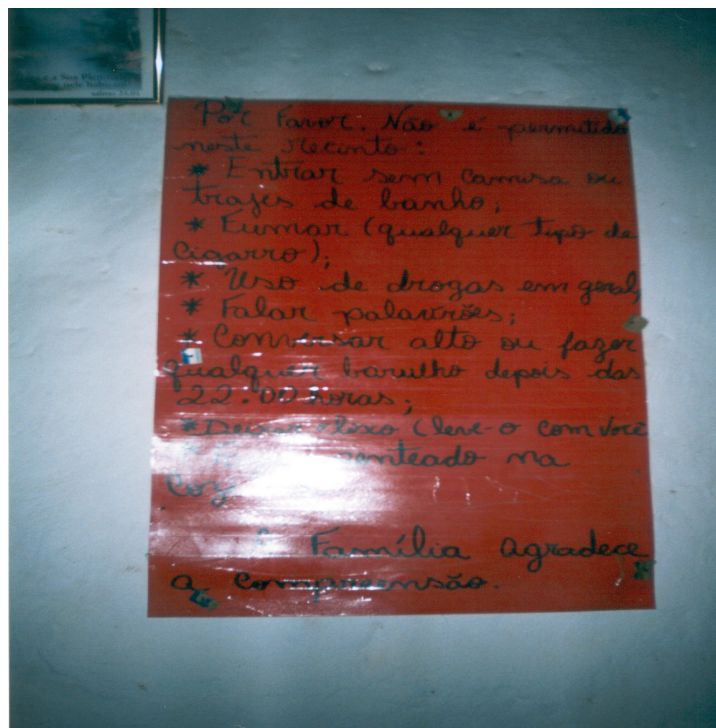 Por Favor. Não é permitido
neste recinto:
* Entrar sem camisa ou
trajes de banho;
* Fumar (qualquer tipo de
cigarro);
* Uso de drogas em geral;
* Falar palavrões;
* Conversar alto ou fazer
qualquer barulho depois das
22:00 horas;
* Deixar lixo (leve-o com você
penteado na
Família agradece
a compreensão.